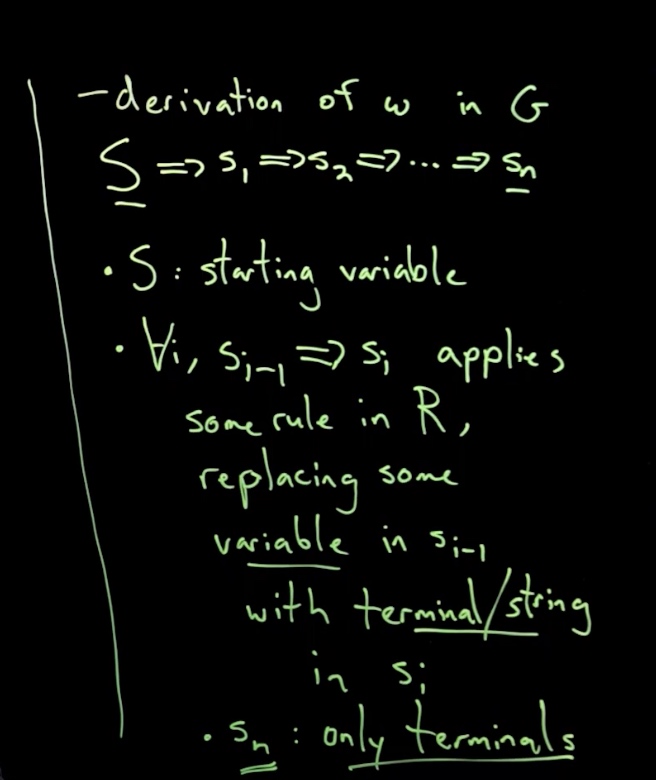 - derivation of w in G
S => s₁ => s₂ => ... => sₙ
• S : starting variable
• ∀i, sᵢ₋₁ => sᵢ applies
some rule in R,
replacing some
variable in sᵢ₋₁
with terminal/string
in sᵢ
• sₙ : only terminals